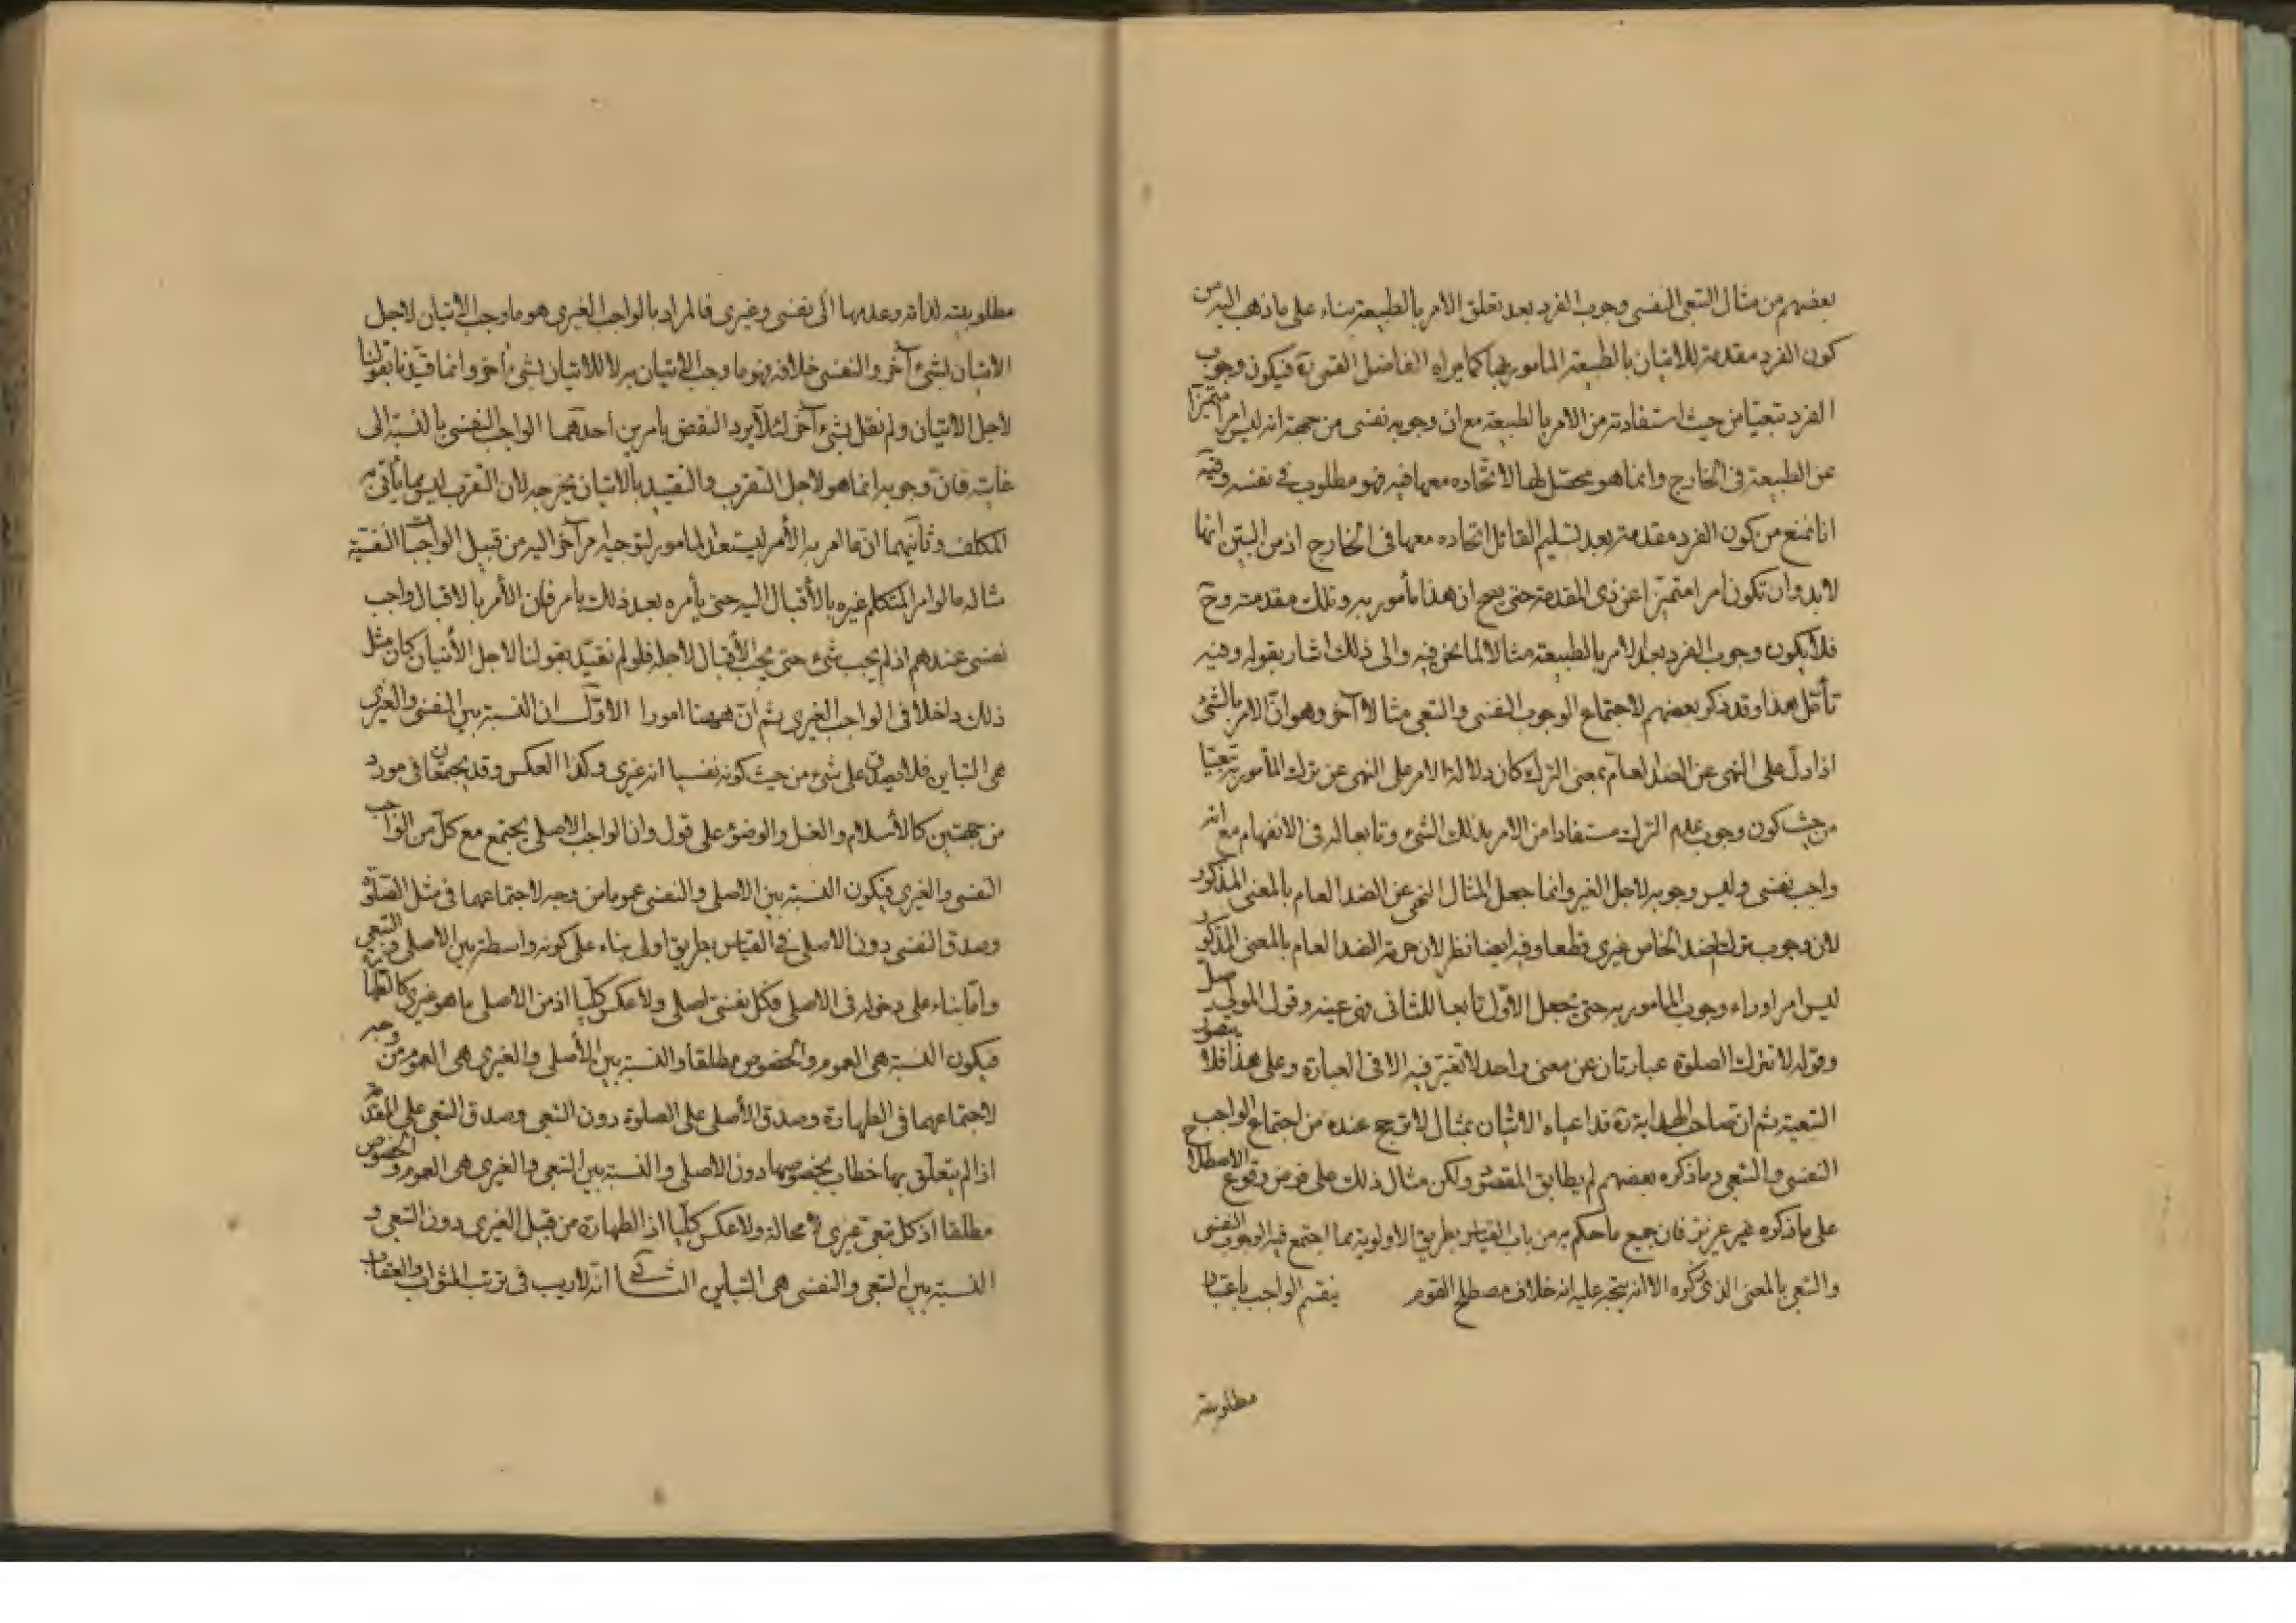 بعضهم من مثال التبعى النفسى وجوب الفرد بعد تعلق الامر بالطبيعة بناء على ما ذهب اليه من
كون الفرد مقدمة للاتيان بالطبيعة المأمور بها كما يراه الفاضل القمى ره فيكون وجوب
الفرد تبعيا من حيث استفادته من الامر بالطبيعة مع ان وجوبه نفسى من جهة انه ليس امرا متميزا
عن الطبيعة فى الخارج وانما هو محصل لها لاتحاده معها فيه فهو مطلوب فى نفسه وفيه
انا نمنع من كون الفرد مقدمة بعد تسليم القائل اتحاده معها فى الخارج اذ من البين انها
لابد وان تكون امرا متميزا عن ذى المقدمة حتى يصح ان هذا مأمور به وتلك مقدمته وح
فلا يكون وجوب الفرد بعد الامر بالطبيعة مثالا لما نحن فيه والى ذلك اشار بقوله وفيه
تأمل هذا وقد ذكر بعضهم لاجتماع الوجوب النفسى والتبعى مثالا آخر وهو ان الامر بالشئ
اذا دل على النهى عن الضد العام بمعنى الترك كان دلالة الامر على النهى عن ترك المأمور به تبعيا
من حيث كون وجوب عدم الترك مستفادا من الامر بذلك الشئ وتابعا له فى الانفهام مع انه
واجب نفسى وليس وجوبه لاجل الغير وانما جعل المثال النهى عن الضد العام بالمعنى المذكور
لان وجوب ترك الضد الخاص غيرى قطعا وفيه ايضا نظر لان حرمة الضد العام بالمعنى المذكور
ليس امرا وراء وجوب المأمور به حتى يجعل الاول تابعا للثانى فهى عينه وقول المولى صل
وقوله لا تترك الصلوة عبارتان عن معنى واحد لا تغير فيه الا فى العبارة وعلى هذا فلا يتصور
التبعية ثم ان صاحب الهداية ره قد اعياه الاتيان بمثال لا يرجح عنده من اجتماع الواجب
النفسى والتبعى وما ذكره بعضهم لم يطابق المقصود ولكن مثال ذلك على فرض وقوع الاصطلاح
على ما ذكره غير عزيز فان جميع ما حكم به من باب القياس بطريق الاولوية مما اجتمع فيه الوجوب النفسى
والتبعى بالمعنى الذى ذكره الا انه يتجه عليه انه خلاف مصطلح القوم ينقسم الواجب باعتبار
مطلوبيته
مطلوبيته لذاته وعدمها الى نفسى وغيرى فالمراد بالواجب الغيرى هو ما وجب الاتيان لاجل
الاتيان بشئ آخر والنفسى خلافه فهو ما وجب الاتيان به لا للاتيان بشئ آخر وانما قيدنا بقولنا
لاجل الاتيان ولم نقل بشئ آخر لئلا يرد النقض بأمرين احدهما الواجب النفسى بالنسبة الى
غايته فان وجوبه انما هو لاجل التقرب والتقييد بالاتيان يخرجه لان التقرب ليس مما يأتى به
المكلف وثانيهما ان ما امر به الأمر ليستعد المأمور لتوجيه امر آخر اليه من قبيل الواجبات النفسية
مثاله ما لو امر المتكلم غيره بالأقبال اليه حتى يأمره بعد ذلك بامر فان الأمر بالاقبال واجب
نفسى عندهم اذ لم يجب شئ حتى يجب الأقبال لاجله فلو لم نقيد بقولنا لاجل الأتيان كان مثل
ذلك داخلا فى الواجب الغيرى ثم ان ههنا امورا الاول ان النسبة بين النفسى والغيرى
هى التباين فلا يصدق على شئ من حيث كونه نفسيا انه غيرى وكذا العكس وقد يجتمعان فى مورد
من جهتين كالأسلام والغسل والوضوء على قول وان الواجب الاصلى يجتمع مع كل من الواجب
النفسى والغيرى فيكون النسبة بين الاصلى والنفسى عموما من وجه لاجتماعهما فى مثل الصلوة
وصدق النفسى دون الاصلى فى القياس بطريق اولى بناء على كونه واسطة بين الاصلى والتبعى
واما بناء على دخوله فى الاصلى فكل نفسى اصلى ولا عكس كليا اذ من الاصلى ما هو غيرى كالطهارة
فيكون النسبة هى العموم والخصوص مطلقا والنسبة بين الأصلى والغيرى هى العموم من وجه
لاجتماعهما فى الطهارة وصدق الأصلى على الصلوة دون التبعى وصدق التبعى على المقدمة
اذا لم يتعلق بها خطاب بخصوصها دون الاصلى والنسبة بين التبعى والغيرى هى العموم والخصوص
مطلقا اذ كل تبعى غيرى لا محالة ولا عكس كليا اذ الطهارة من قبيل الغيرى دون التبعى و
النسبة بين التبعى والنفسى هى التباين الثانى انه لا ريب فى ترتب الثواب والعقاب